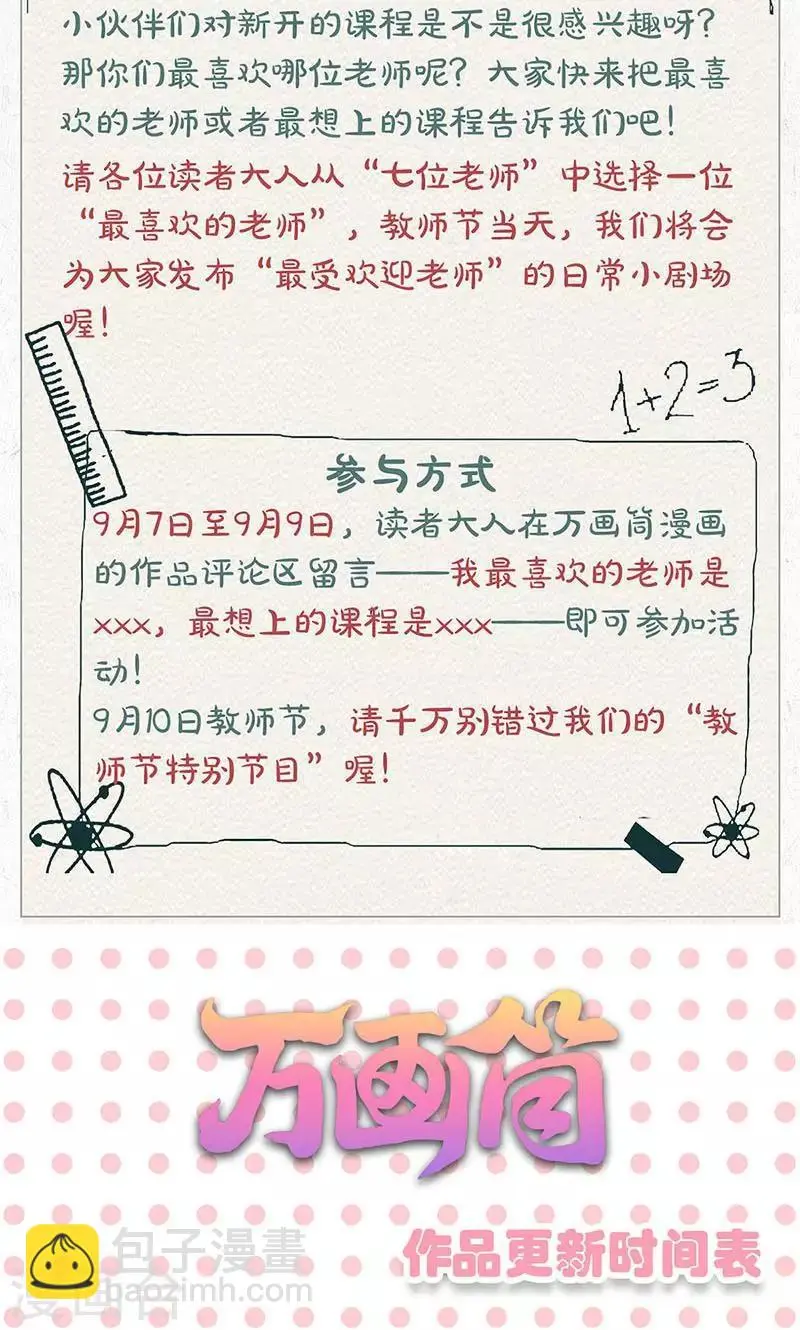 小伙伴们对新开的课程是不是很感兴趣呀？
那你们最喜欢哪位老师呢？大家快来把最喜
欢的老师或者最想上的课程告诉我们吧！
请各位读者大人从“七位老师”中选择一位
“最喜欢的老师”，教师节当天，我们将会
为大家发布“最受欢迎老师”的日常小剧场
喔！
1+2=3
参与方式
9月7日至9月9日，读者大人在万画筒漫画
的作品评论区留言——我最喜欢的老师是
xxx，最想上的课程是xxx——即可参加活
动！
9月10日教师节，请千万别错过我们的“教
师节特别节目”喔！
万画筒
作品更新时间表
包子漫畫
baozimh.com